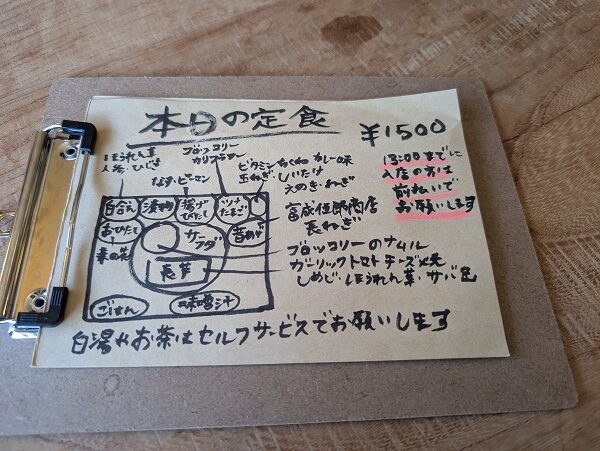 本日の定食
¥1500
13:00までに
入店の方は
前払いで
お願いします
ほうれん草
人参・ひじき
なす・ピーマン
ブロッコリー
カリフラワー
ビタミンちくわ カレー味
玉ねぎ・しいたけ
えのき・ねぎ
白合え
漬物
揚げ
びたし
ツナ
たまご
おひたし
サラダ
菜の花
長芋
ごはん
味噌汁
富成伍郎商店
長ねぎ
ブロッコリーのナムル
ガーリックトマトチーズ焼
しめじ・ほうれん草・サバ缶
白湯やお茶はセルフサービスでお願いします